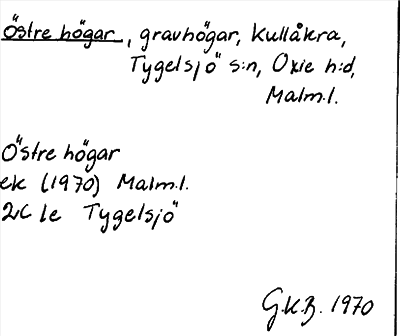 Östre högar, gravhögar, Kullåkra,
Tygelsjö s:n, Oxie h:d,
Malm.l.
Östre högar
ek (1970) Malm.l.
2C 1e Tygelsjö
G.K.B. 1970